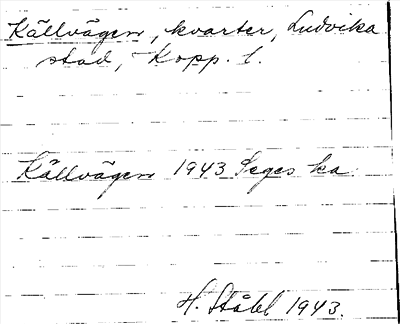 Källvägen, kvarter, Ludvika
stad, Kopp. l.
Källvägen 1943 Seges ka.
H. Ståhl 1943.